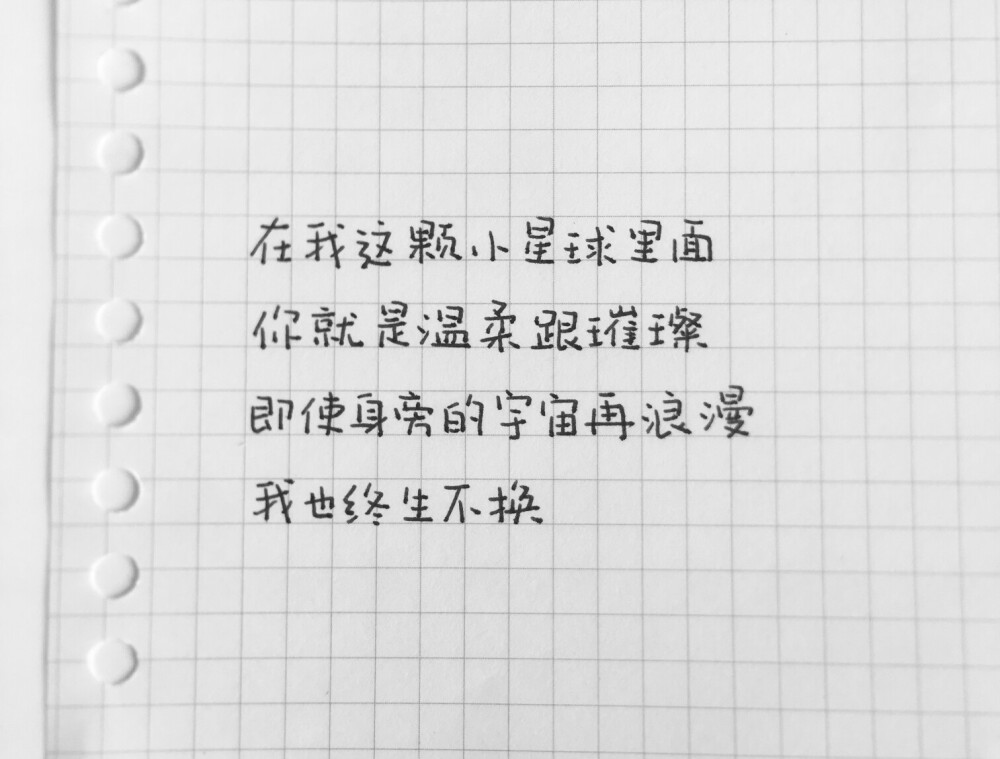 在我这颗小星球里面
你就是温柔跟璀璨
即使身旁的宇宙再浪漫
我也终生不换